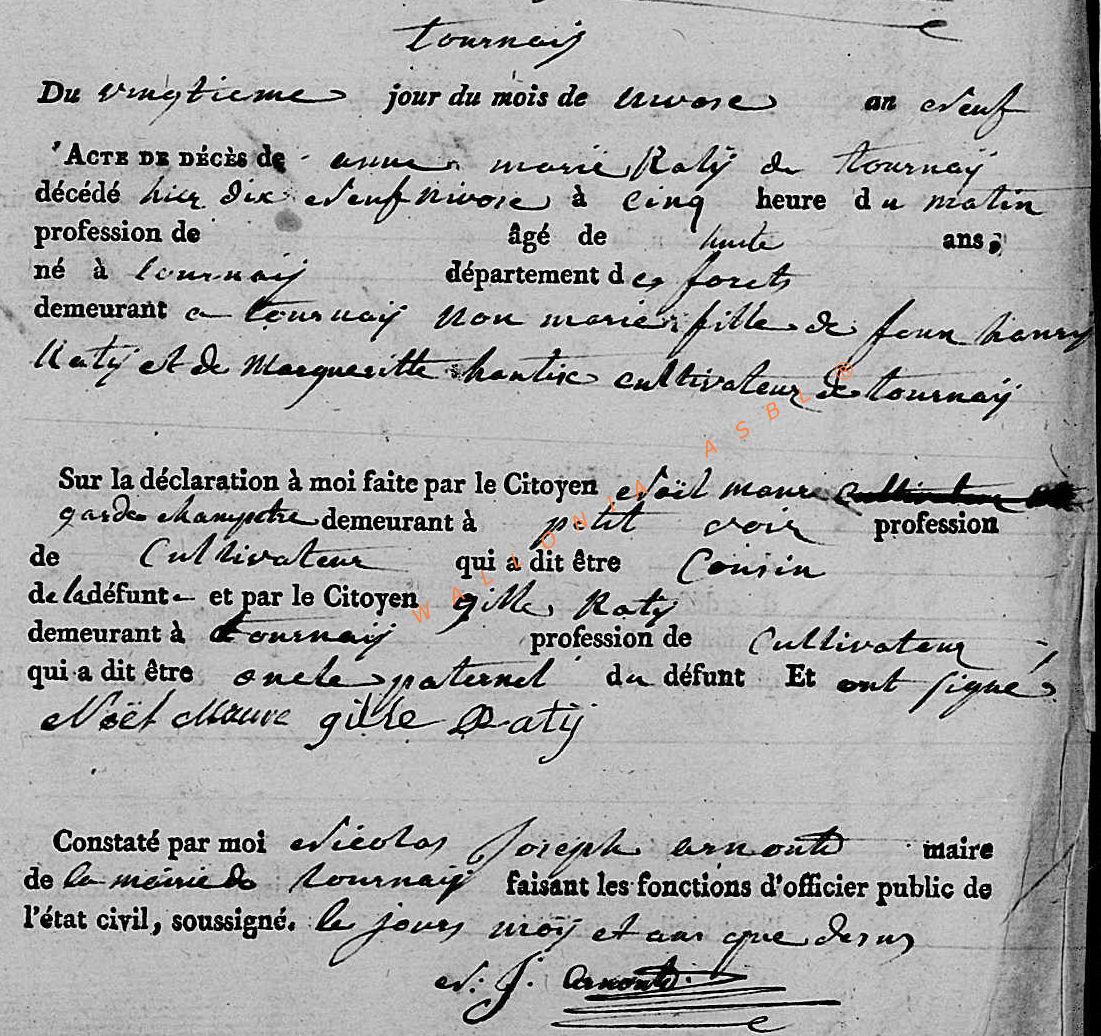 tournaij
Du vingtieme jour du mois de nivose an Neuf
ACTE DE DÉCÈS de anne marie Ratÿ de tournaÿ
décédé hier dix Neuf Nivose à cinq heure du matin
profession de âgé de huite ans;
né à tournaij département des forets
demeurant a tournaÿ Non marié fille de feux hanry
Ratÿ et de Margueritte hautix cultivateur de tournaÿ
Sur la déclaration à moi faite par le Citoyen Noël maure
garde champetre demeurant à petit voir profession
de Cultivateur qui a dit être Cousin
de la défunte et par le Citoyen gille Ratÿ
demeurant à tournaij profession de Cultivateur
qui a dit être oncle paternel du défunt Et ont signé
Noël Mauve gille Ratÿ
Constaté par moi Nicolas Joseph arnould maire
de la mairie de tournaÿ faisant les fonctions d'officier public de
l'état civil, soussigné. le jours moÿ et ans que desus
N. J. arnould
WALLONIA ASBL ©